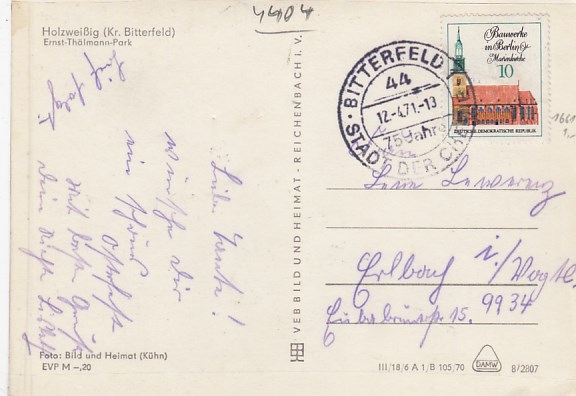 4404
Holzweißig (Kr. Bitterfeld)
Ernst-Thälmann-Park
Liebe Tante!
wünsche dir
ein schönes
Osterfeste
Mit Gruß
deine Nichte
VEB BILD UND HEIMAT · REICHENBACH i. V.
BITTERFELD
44
12.-4.71.-13
750 Jahre
STADT DER CHEMIE
Bauwerke
in Berlin
Marienkirche
10
DEUTSCHE DEMOKRATISCHE REPUBLIK
Erlbach i./Vogtl.
15. 9934
Foto: Bild und Heimat (Kühn)
EVP M –,20
III/18/6 A 1/B 105/70
DAMW
8/2807